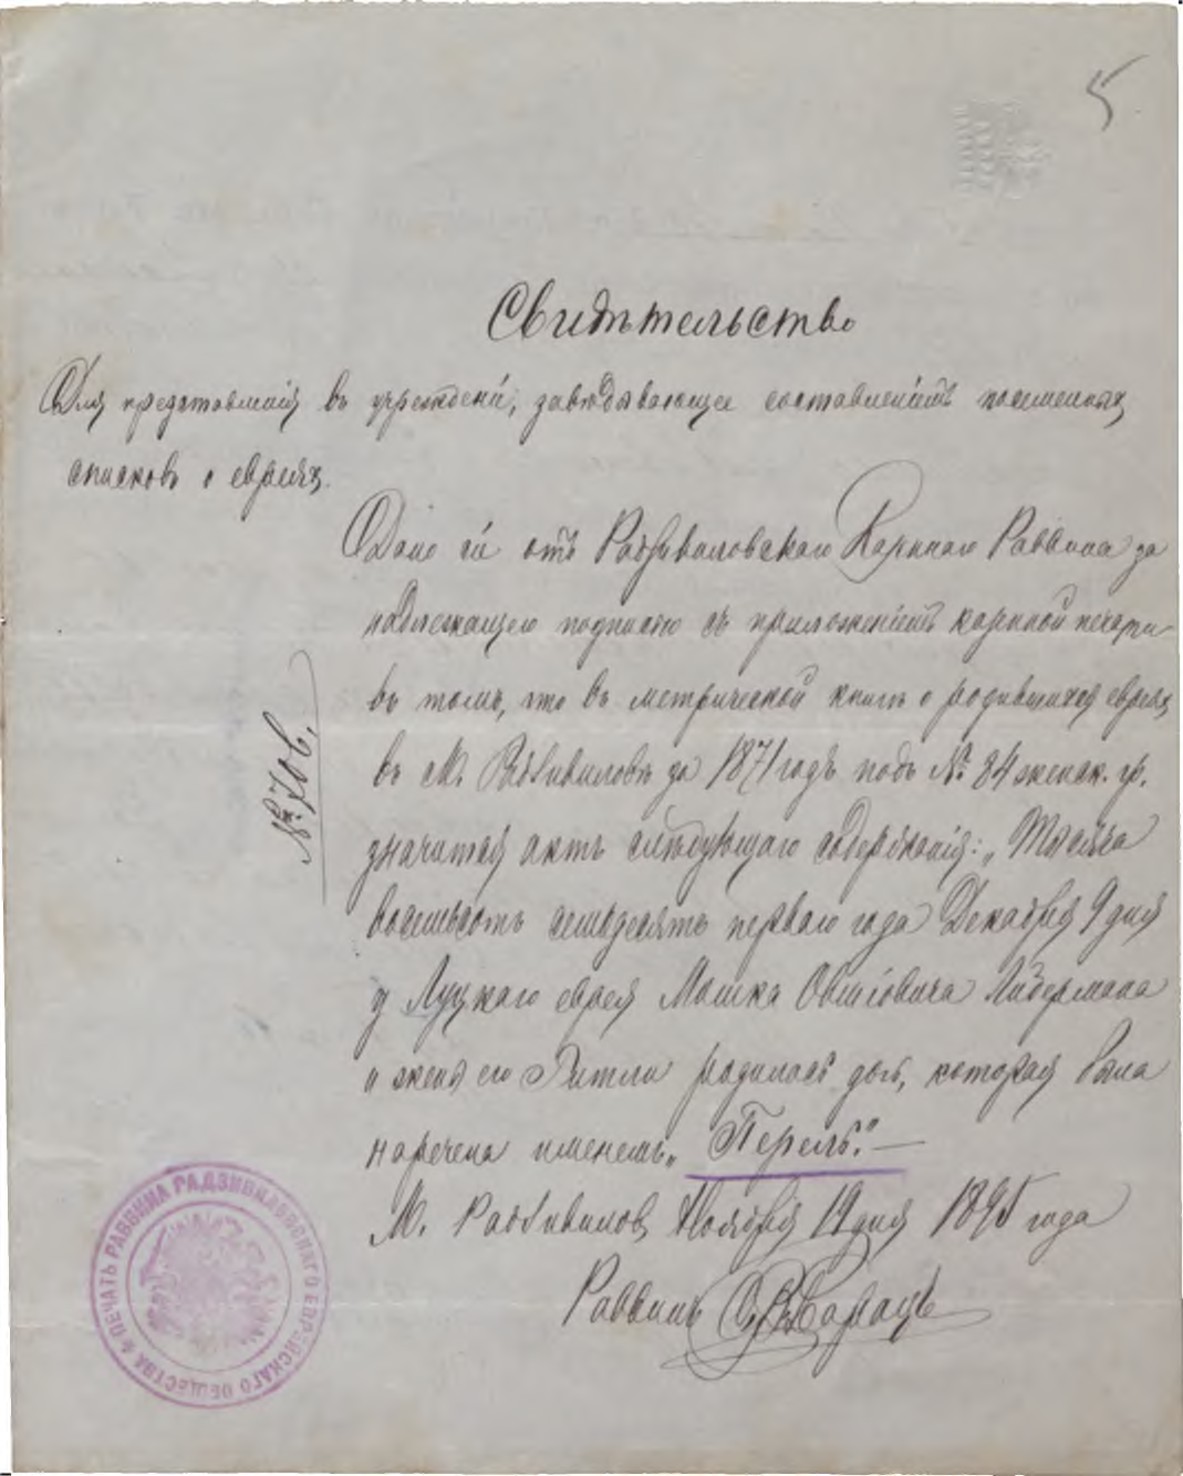 5
Свидѣтельство
Для представленія въ учрежденія, завѣдывающія составленіемъ посемейныхъ
списковъ о евреяхъ.
Дано сіе отъ Радзивиловскаго Казеннаго Раввина за
надлежащею подписью съ приложеніемъ казенной печати
въ томъ, что въ метрической книгѣ о родившихся евреяхъ
въ М. Радзивиловѣ за 1871 годъ подъ № 84 женск. гр.
значится актъ слѣдующаго содержанія: „Тысяча
восемьсотъ семьдесятъ перваго года Декабря 9 дня
у Луцкаго еврея Мошка Овшіовича Либермана
и жены его Гитли родилась дочь, которая была
наречена именемъ „Перель."—
М. Радзивиловъ Ноября 19 дня 1895 года
Раввинъ
№ 706.
ПЕЧАТЬ РАВВИНА РАДЗИВИЛОВСКАГО ЕВРЕЙСКАГО ОБЩЕСТВА